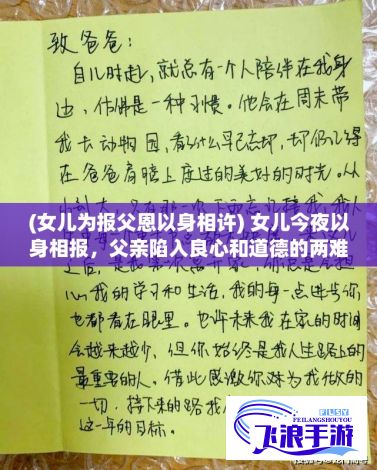 致爸爸：
自儿时起，就总有一个人陪伴在我身
边，仿佛是一种习惯。他会在周末带
我去动物园，看什么早已忘却，却仍记得
在爸爸肩膀上度过的美好的时光。从
(女儿为报父恩以身相许) 女儿今夜以
身相报，父亲陷入良心和道德的两难
心我的学习和生活，我的每一点进步你
也都看在眼里。也许未来我在家的时间
会越来越少，但你始终是我人生路上的
最重要的人，借此感激你为我做的
一切，接下来的路我
这一年的目标。
PLSY
FEILANGSHOUYOU.COM
飞浪手游